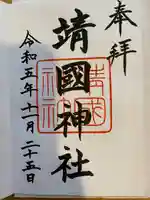 奉拝
靖國神社
令和五年十一月二十五日